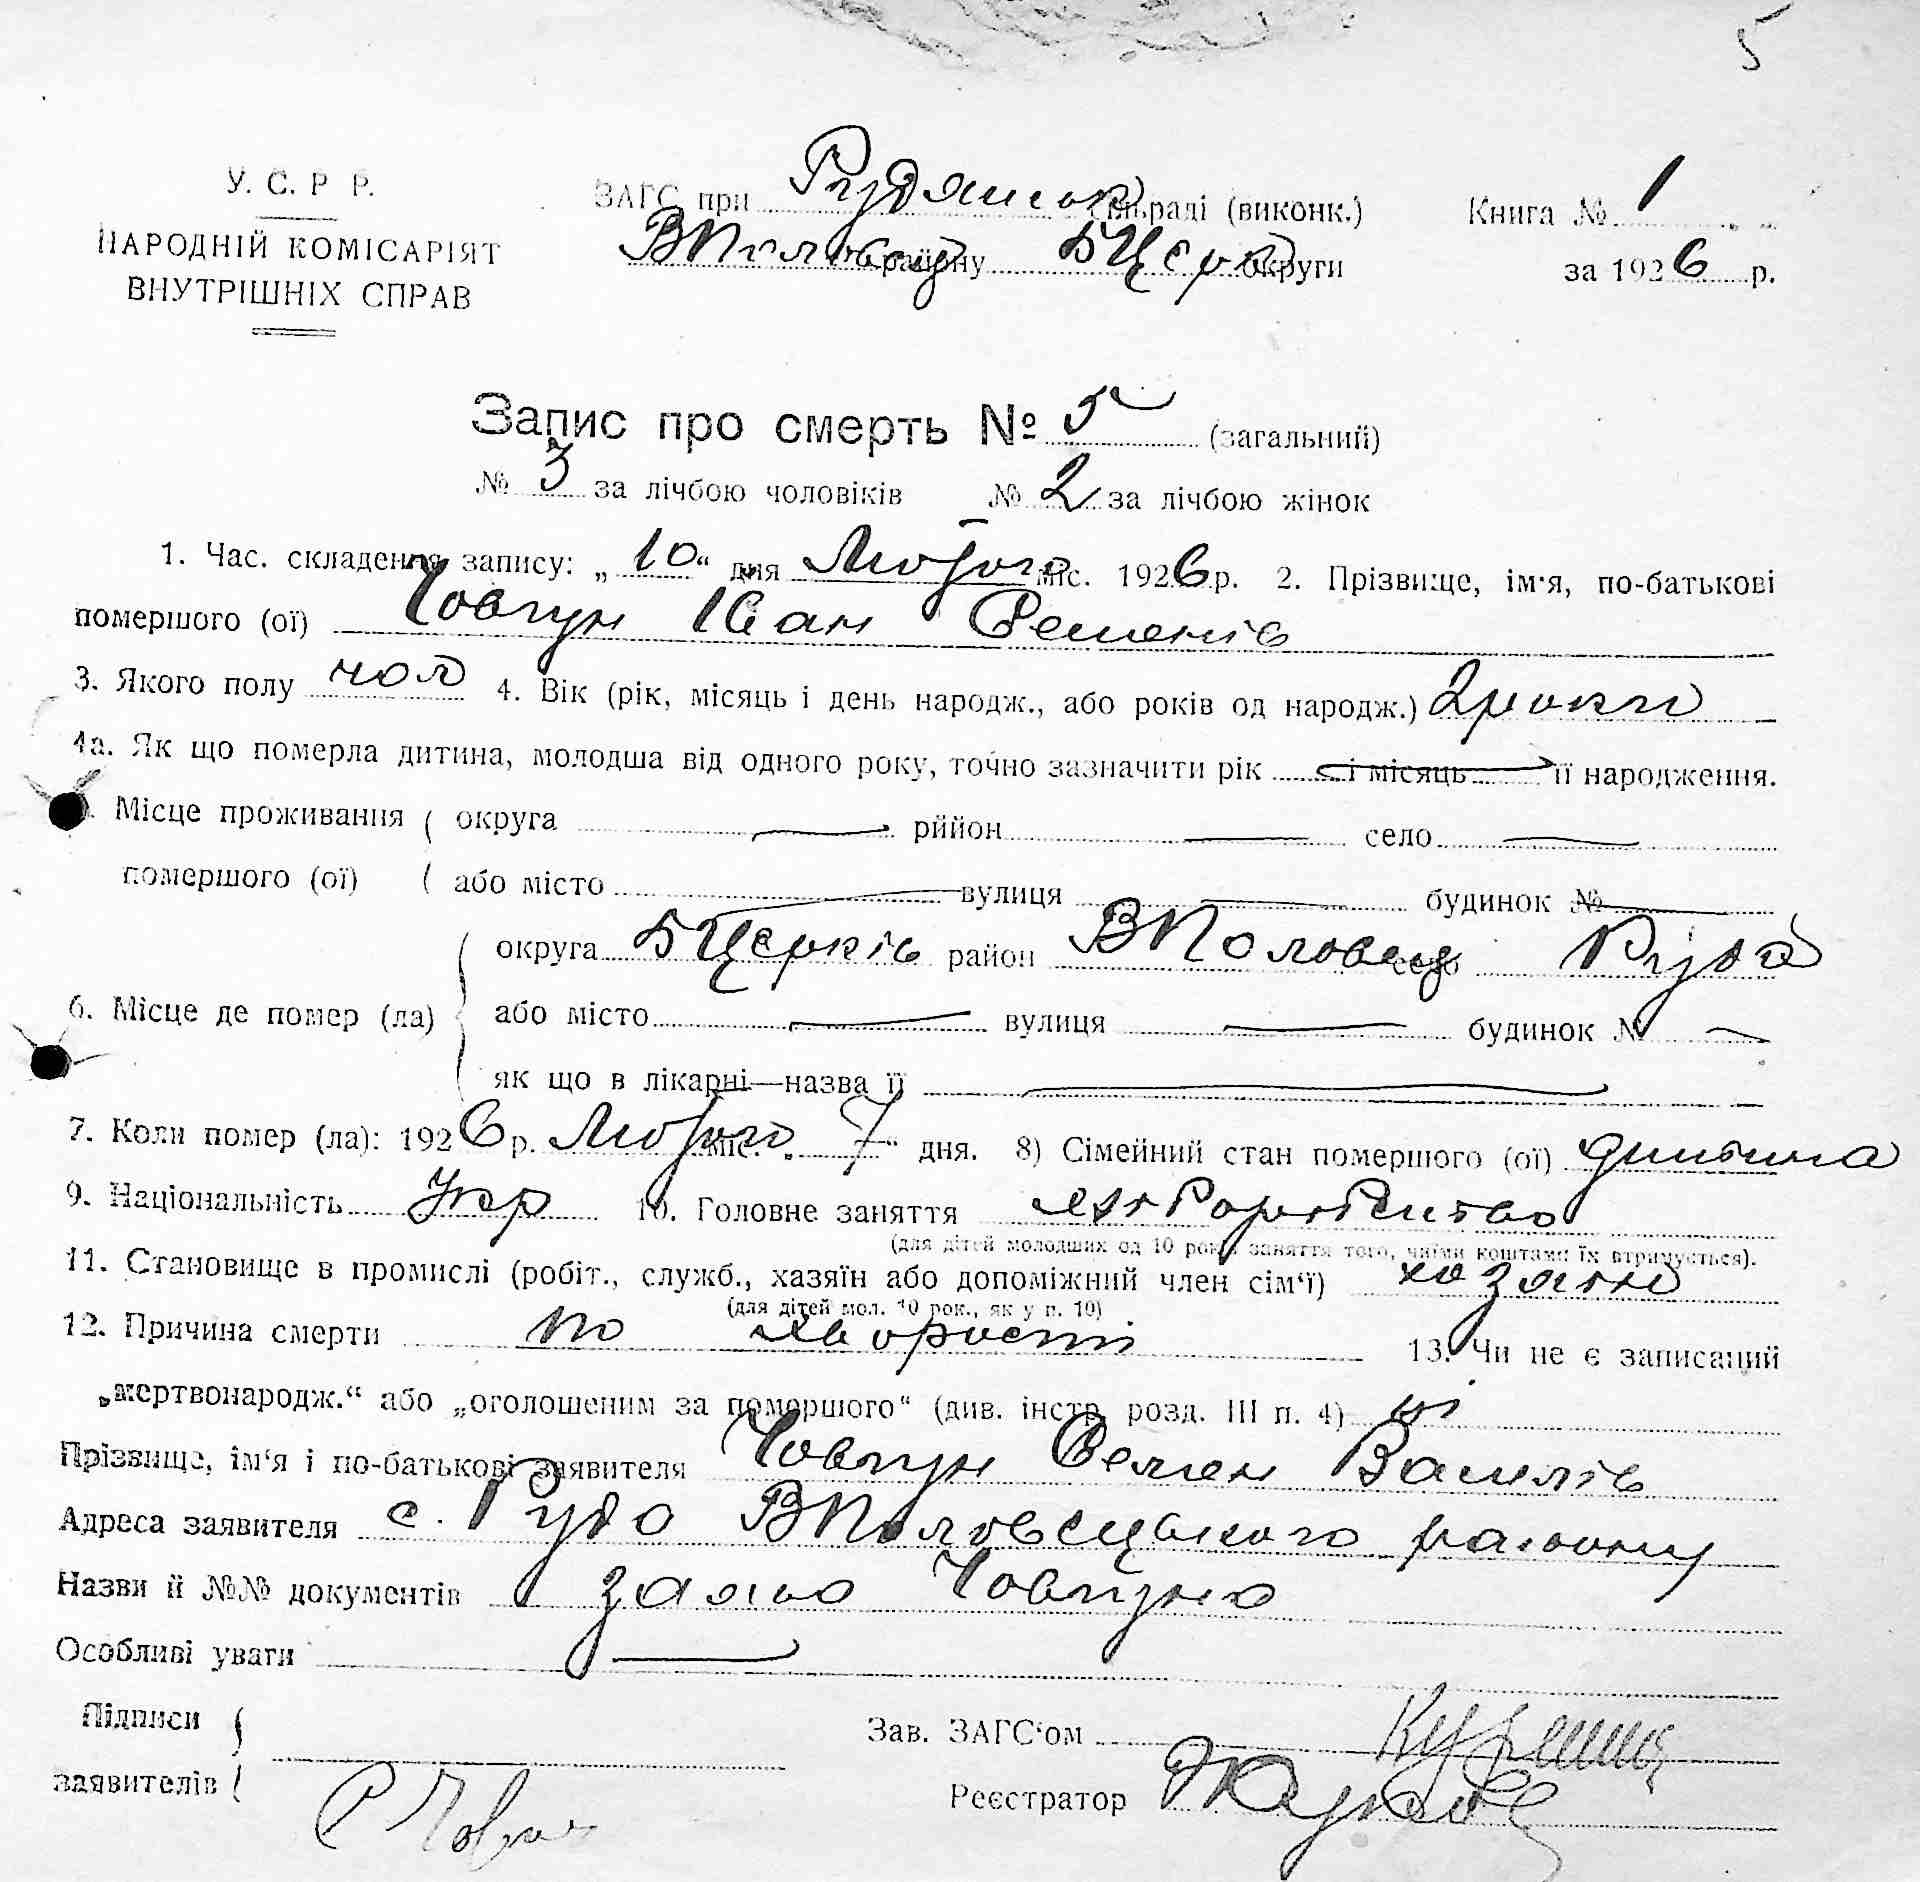 5
У. С. Р Р.
НАРОДНІЙ КОМІСАРІЯТ
ВНУТРІШНІХ СПРАВ
ЗАГС при Рудянськ сільраді (виконк.)
ВПоловец району БЦерк округи
Книга № 1
за 1926 р.
Запис про смерть № 5 (загальний)
№ 3 за лічбою чоловіків № 2 за лічбою жінок
1. Час. складення запису: „10“ дня Лютого міс. 1926 р. 2. Прізвище, ім'я, по-батькові
помершого (ої) Човгун Іван Семенів
3. Якого полу чол 4. Вік (рік, місяць і день народж., або років од народж.) 2 роки
4а. Як що померла дитина, молодша від одного року, точно зазначити рік і місяць її народження.
Місце проживання ( округа рййон село
помершого (ої) ( або місто вулиця будинок №
6. Місце де помер (ла) округа БЦерків район ВПоловец село Руда
або місто вулиця будинок №
як що в лікарні—назва її
7. Коли помер (ла): 1926 р. Лютого міс. „7“ дня. 8) Сімейний стан помершого (ої) дитина
9. Національність Укр 10. Головне заняття хліборобство
(для дітей молодших од 10 років заняття того, чиїми коштами їх втримується).
11. Становище в промислі (робіт., служб., хазяїн або допоміжний член сім‘ї) хазяїн
(для дітей мол. 10 рок., як у п. 10)
12. Причина смерти по хворості 13. Чи не є записаний
„мертвонародж.“ або „оголошеним за поморшого“ (див. інстр. розд. III п. 4) ні
Прізвище, ім‘я і по-батькові заявителя Човгун Семен Василів
Адреса заявителя с. Руда ВПоловецького району
Назви й №№ документів заява Човгуна
Особливі уваги
Підписи
заявителів
С Човгун
Зав. ЗАГС‘ом
Реєстратор